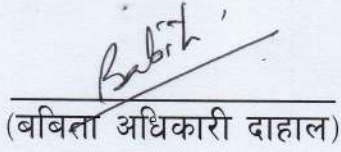 Babita
(बबिता अधिकारी दाहाल)